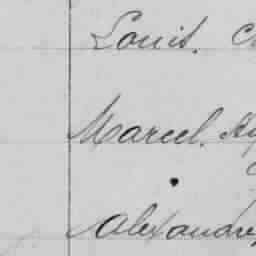 Louis.
Marcel.
Alexandre